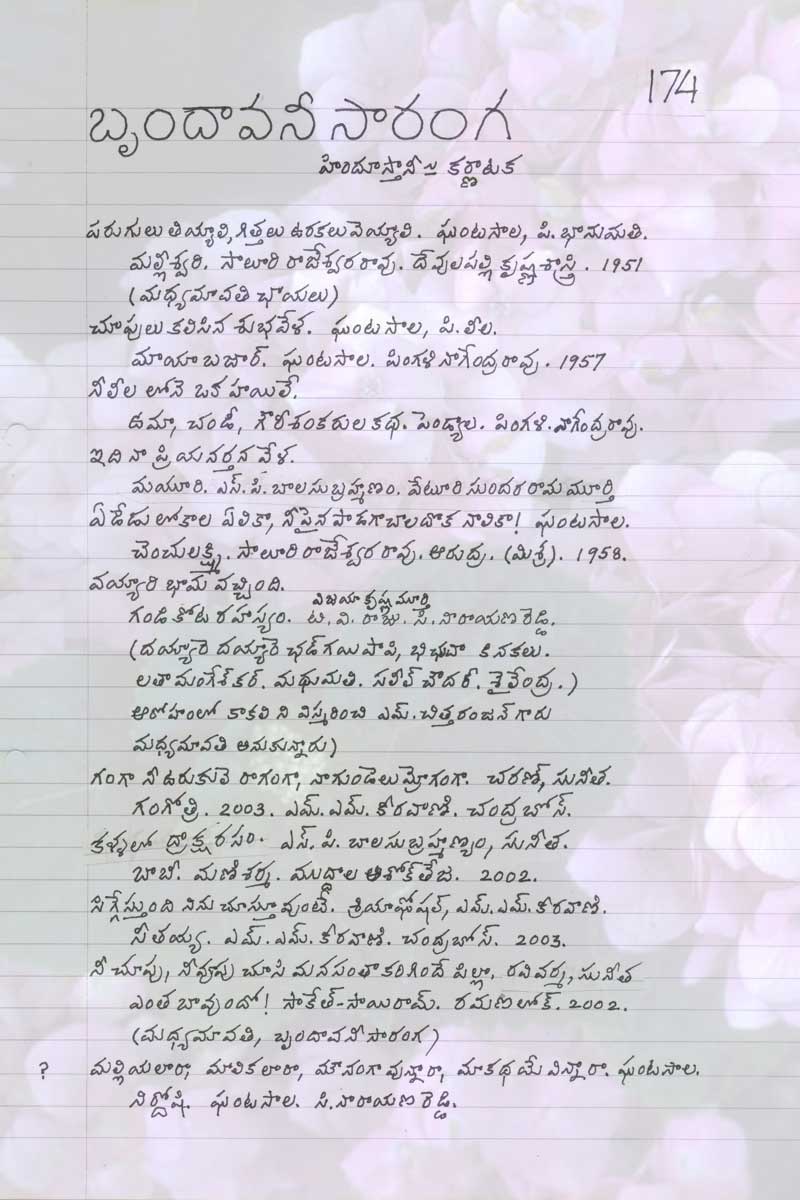 174
బృందావనీ సారంగ
హిందూస్తానీ ~ కర్ణాటక
పరుగులు తియ్యాలి, గిత్తలు ఉరకలు వెయ్యాలి. ఘంటసాల, పి. భానుమతి.
మల్లీశ్వరి. సాలూరి రాజేశ్వరరావు. దేవులపల్లి కృష్ణశాస్త్రి. 1951
(మధ్యమావతి ఛాయలు)
చూపులు కలిసిన శుభవేళ. ఘంటసాల, పి. లీల.
మాయాబజార్. ఘంటసాల. పింగళి నాగేంద్రరావు. 1957
నీలీల లోనె ఒక హాయిలే.
ఉమా, చండీ, గౌరీశంకరుల కథ. పెండ్యాల. పింగళి. నాగేంద్రరావు.
ఇది నా ప్రియ నర్తన వేళ.
మయూరి. ఎస్. పి. బాలసుబ్రహ్మణం. వేటూరి సుందరరామమూర్తి
ఏడేడు లోకాల ఏలికా, నీపైన పాడగా చాలదొక నాలికా! ఘంటసాల.
చెంచులక్ష్మి. సాలూరి రాజేశ్వరరావు. ఆరుద్ర. (మిశ్ర). 1958.
వయ్యారి భామ వచ్చింది.
విజయా కృష్ణమూర్తి
గండికోట రహస్యం. టి. వి. రాజు. సి. నారాయణరెడ్డి.
(దయ్యారె దయ్యారె ఛడ్ గయిపాపి, భిఛువా
లతా మంగేశ్కర్. మధుమతి. సలీల్ చౌదరీ. శైలేంద్ర.)
ఆరోహంలో కాకలి ని విస్మరించి ఎమ్. చిత్తరంజన్ గారు
మధ్యమావతి అనుకున్నారు)
గంగా నీ ఉరుకులె రాగంగా, నాగుండెలు మ్రోగంగా. చరణ్, సునీత.
గంగోత్రి. 2003. ఎమ్. ఎమ్. కీరవాణి. చంద్రబోస్.
కళ్ళలో ద్రాక్షరసం. ఎస్. పి. బాలసుబ్రహ్మణ్యం, సునీత.
బాబీ. మణిశర్మ. ముద్దాల అశోక్ తేజ. 2002.
సిగ్గేస్తుంది నిను చూస్తూవుంటే. శ్రియాఘోషల్, ఎమ్. ఎమ్. కీరవాణి.
సీతయ్య. ఎమ్. ఎమ్. కీరవాణి. చంద్రబోస్. 2003.
నీ చూపు, నీవైపు చూసి మనసంతా కరిగిందే పిల్లా, రవివర్మ, సునీత
ఎంత బావుందో! సాకేత్-సాయిరామ్. రమణలోక్. 2002.
(మధ్యమావతి, బృందావనీ సారంగ)
? మల్లియలారా, మాలికలారా, మౌనంగా వున్నారా, మాకథయే విన్నారా. ఘంటసాల.
నిర్దోషి. ఘంటసాల. సి. నారాయణరెడ్డి.